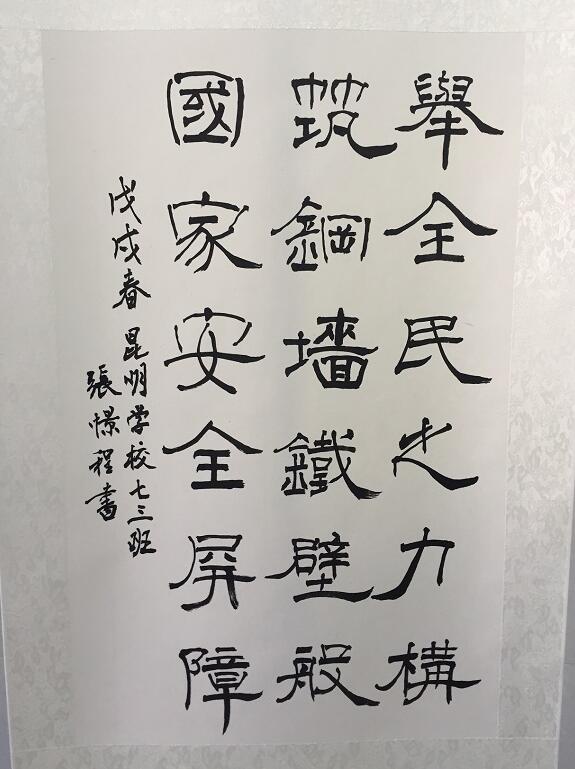 舉全民之力構
筑鋼墻鐵壁般
國家安全屏障
戊戌春昆明学校七三班
張憬程書